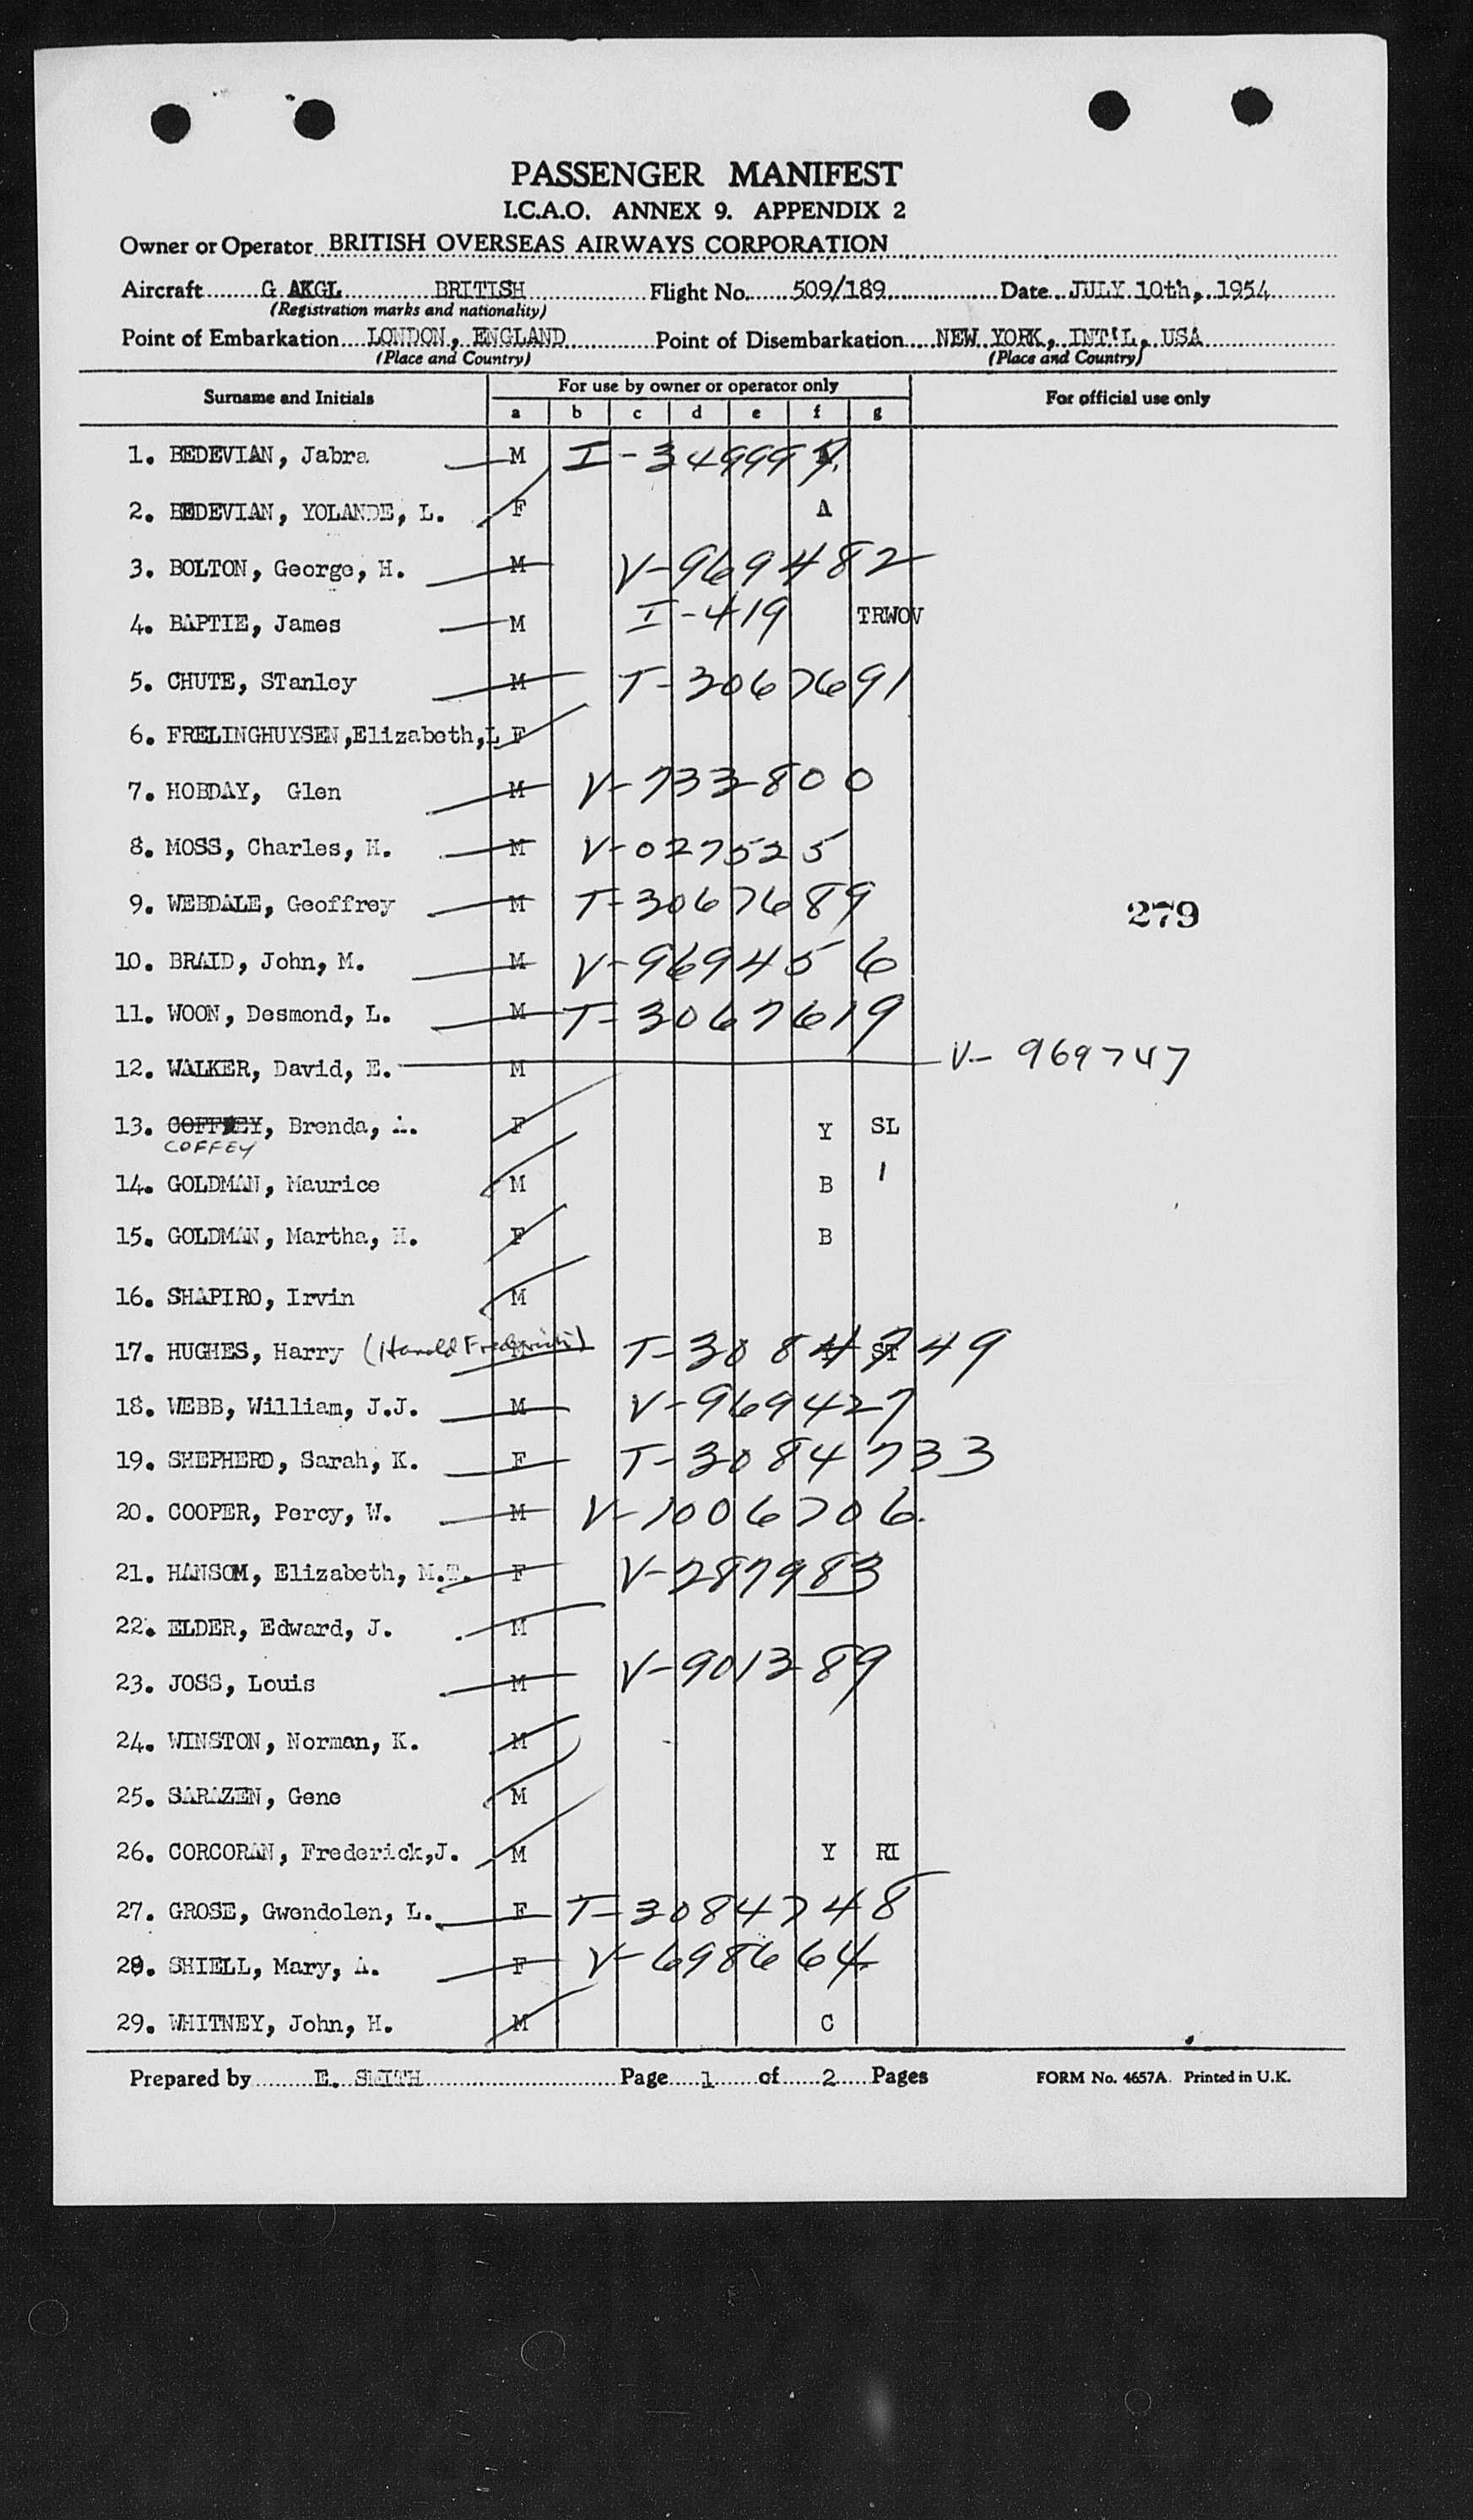 PASSENGER MANIFEST
I.C.A.O. ANNEX 9. APPENDIX 2
Owner or Operator BRITISH OVERSEAS AIRWAYS CORPORATION
Aircraft G AKGL BRITISH Flight No. 509/189 Date JULY 10th, 1954
(Registration marks and nationality)
Point of Embarkation LONDON, ENGLAND Point of Disembarkation NEW YORK, INT'L, USA
(Place and Country) (Place and Country)
Surname and Initials For use by owner or operator only For official use only
a b c d e f g
1. BEDEVIAN, Jabra M I-349999
2. BEDEVIAN, YOLANDE, L. F A
3. BOLTON, George, H. M V-969482
4. BAPTIE, James M I-419 TRWOV
5. CHUTE, STanley M T-3067691
6. FRELINGHUYSEN,Elizabeth,L F
7. HOBDAY, Glen M V-733800
8. MOSS, Charles, H. M V-027525
9. WEBDALE, Geoffrey M T-3067689
279
10. BRAID, John, M. M V-969456
11. WOON, Desmond, L. M T-3067619
12. WALKER, David, E. M V-969747
13. COFFEY, Brenda, F Y SL
COFFEY
14. GOLDMAN, Maurice M B 1
15. GOLDMAN, Martha, H. F B
16. SHAPIRO, Irvin M
17. HUGHES, Harry (Harold Frederick) M T-3084749 ST
18. WEBB, William, J.J. M V-969427
19. SHEPHERD, Sarah, K. F T-3084733
20. COOPER, Percy, W. M V-1006706.
21. HANSOM, Elizabeth, M.T. F V-287983
22. ELDER, Edward, J. M
23. JOSS, Louis M V-901389
24. WINSTON, Norman, K. M
25. SARAZEN, Gene M
26. CORCORAN, Frederick,J. M Y RI
27. GROSE, Gwendolen, L. F T-3084748
28. SHIELL, Mary, A. F V-698664
29. WHITNEY, John, H. M C
Prepared by E. SMITH Page 1 of 2 Pages FORM No. 4657A. Printed in U.K.